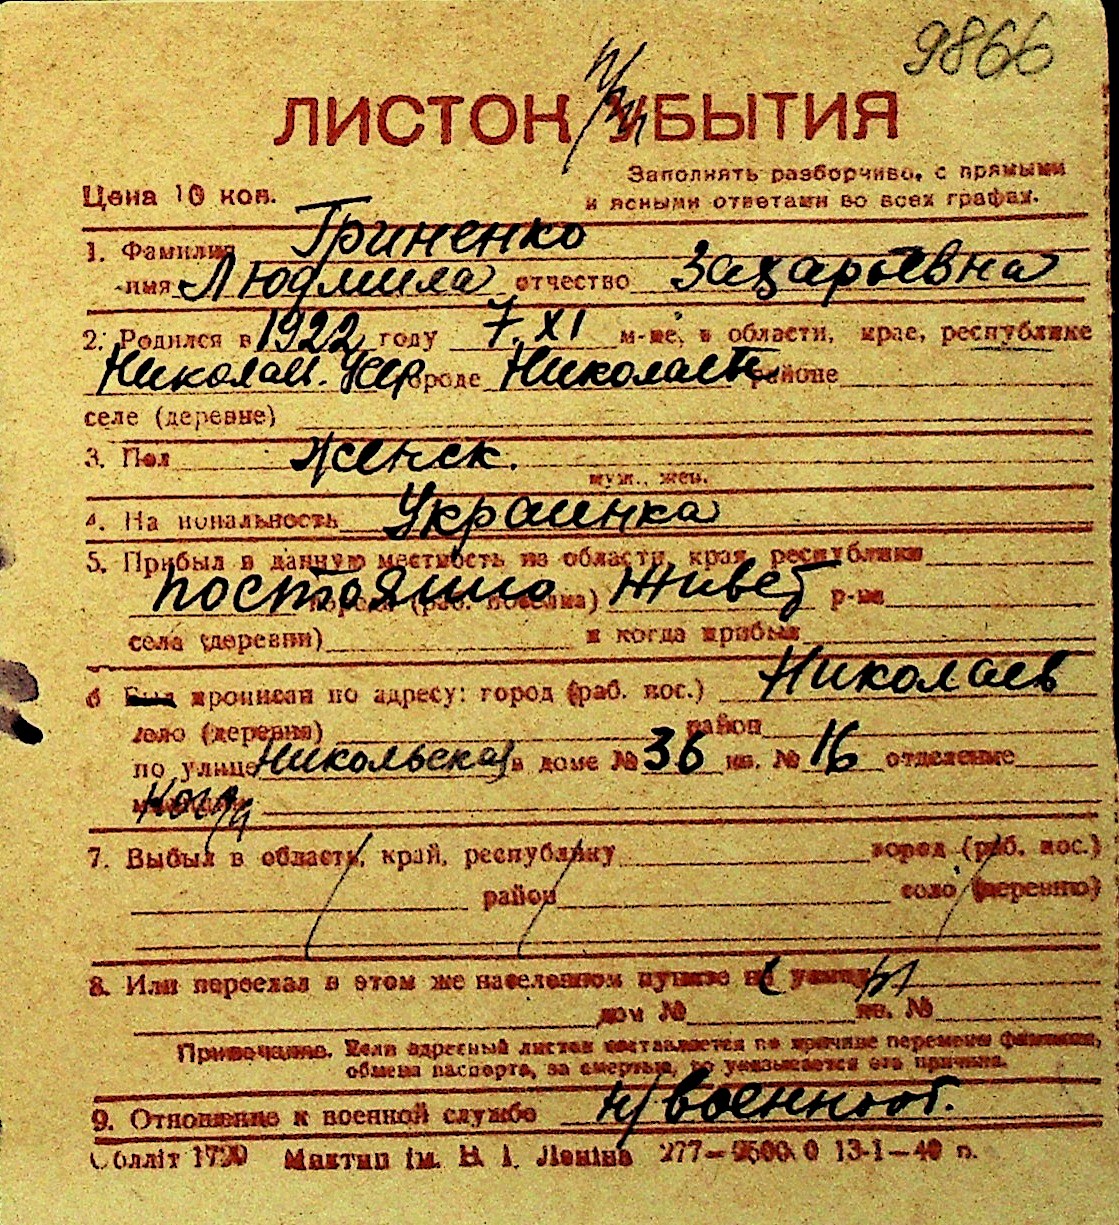 9866
ЛИСТОК УБЫТИЯ
Заполнять разборчиво, с прямыми
Цена 10 коп.
и ясными ответами во всех графах.
1. Фамилия Гриненко
имя Людмила отчество Захарьевна
2. Родился в 1922 году 7.XI м-це, в области, крае, республике
Николаев. УССР городе Николаев районе
селе (деревне)
3. Пол женск.
муж., жен.
4. Национальность Украинка
5. Прибыл в данную местность из области, края, республики
постоянно живет
города (раб. поселка) р-на
села (деревни) и когда прибыл
6 Был прописан по адресу: город (раб. пос.) Николаев
село (деревня) район
по улице Никольская в доме № 36 кв. № 16 отделение
милиции
7. Выбыл в область, край, республику город (раб. пос.)
район село (деревню)
8. Или переехал в этом же населенном пункте на улицу
дом № кв. №
Примечание. Если адресный листок составляется по причине перемены фамилии,
обмена паспорта, за смертью, то указывается эта причина.
9. Отношение к военной службе н/военнооб.
Обллiт 1720 Миктип iм. В. I. Ленiна 277—9500.0 13-1—40 р.